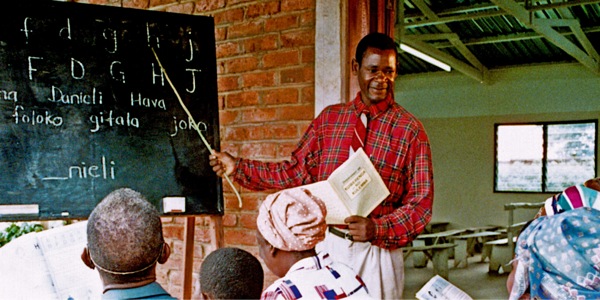 f d g h j
F D G H J
na Danieli Hava
foloko gitala joko
_nieli